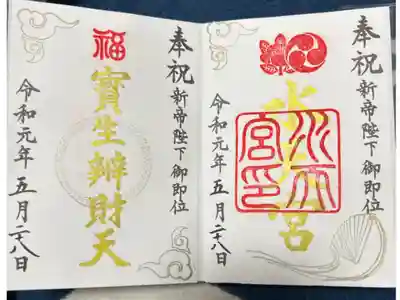 奉祝
新帝陛下御即位
水天宮
水天宮印
令和元年 五月二十八日
奉祝
新帝陛下御即位
福
寶生辨財天
令和元年 五月二十八日